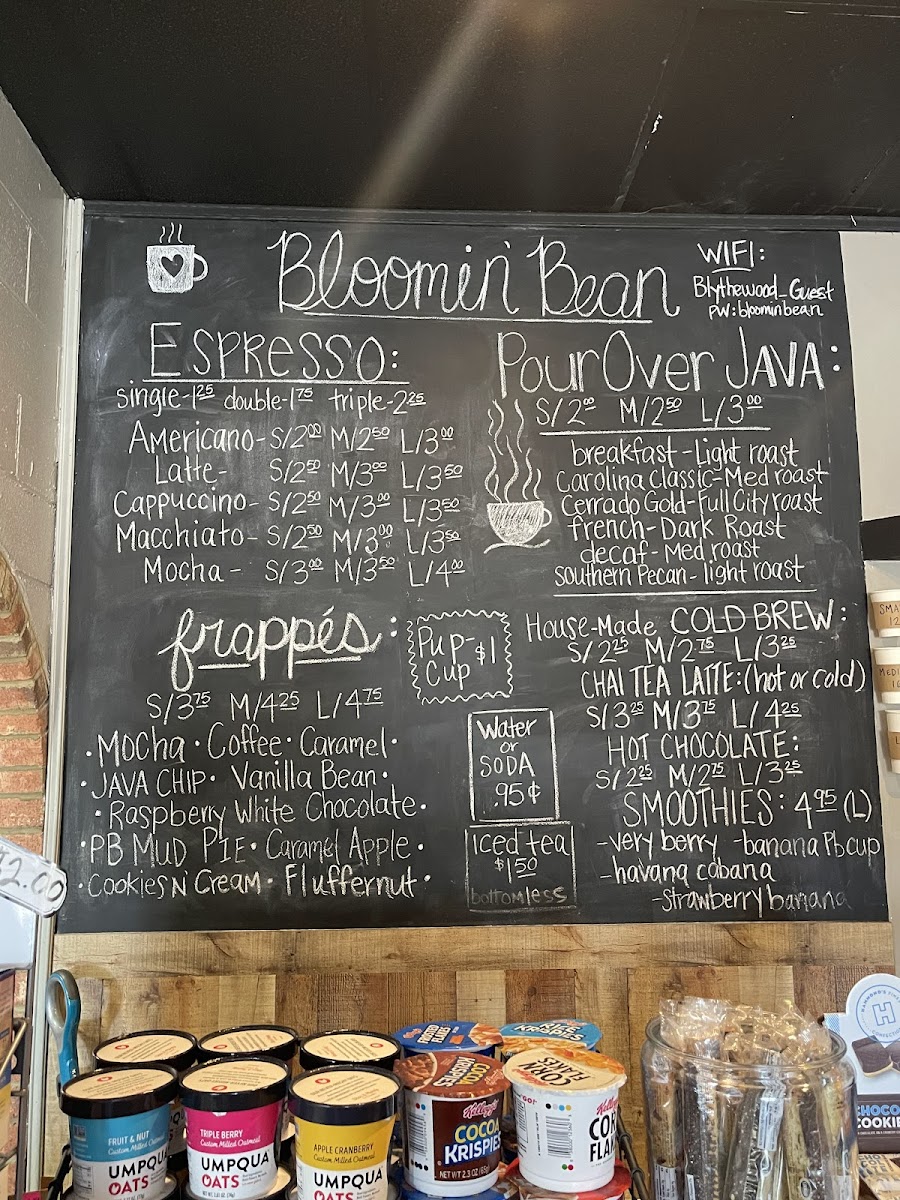 Bloomin' Bean
WIFI:
Blythewood_Guest
PW: bloominbean
ESPRESSO:
single-1.25 double-1.75 triple-2.25
Americano- S/2.00 M/2.50 L/3.00
Latte- S/2.50 M/3.00 L/3.50
Cappuccino- S/2.50 M/3.00 L/3.50
Macchiato- S/2.50 M/3.00 L/3.50
Mocha - S/3.00 M/3.50 L/4.00
Pour Over JAVA:
S/2.00 M/2.50 L/3.00
breakfast - Light roast
Carolina Classic-Med roast
Cerrado Gold-Full City roast
french- Dark Roast
decaf- Med roast
southern Pecan- light roast
frappés:
S/3.75 M/4.25 L/4.75
·Mocha · Coffee · Caramel·
·JAVA CHIP· Vanilla Bean·
·Raspberry White Chocolate·
·PB MUD PIE· Caramel Apple·
·Cookies N' Cream· Fluffernut·
Pup-
Cup $1
Water
or
SODA
.95¢
iced tea
$1.50
bottomless
House-Made COLD BREW:
S/2.25 M/2.75 L/3.25
CHAI TEA LATTE: (hot or cold)
S/3.25 M/3.75 L/4.25
HOT CHOCOLATE:
S/2.25 M/2.75 L/3.25
SMOOTHIES: 4.95 (L)
-very berry -banana Pb cup
-havana cabana
-strawberry banana
2.00
FRUIT & NUT
Custom Milled Oatmeal
UMPQUA
OATS
TRIPLE BERRY
Custom Milled Oatmeal
UMPQUA
OATS
APPLE CRANBERRY
Custom Milled Oatmeal
UMPQUA
OATS
FROSTED
FLAKES
RICE
KRISPIES
COCOA
KRISPIES
Kellogg's
COCOA
KRISPIES
NET WT 2.3 OZ (65g)
CORN
FLAKES
H